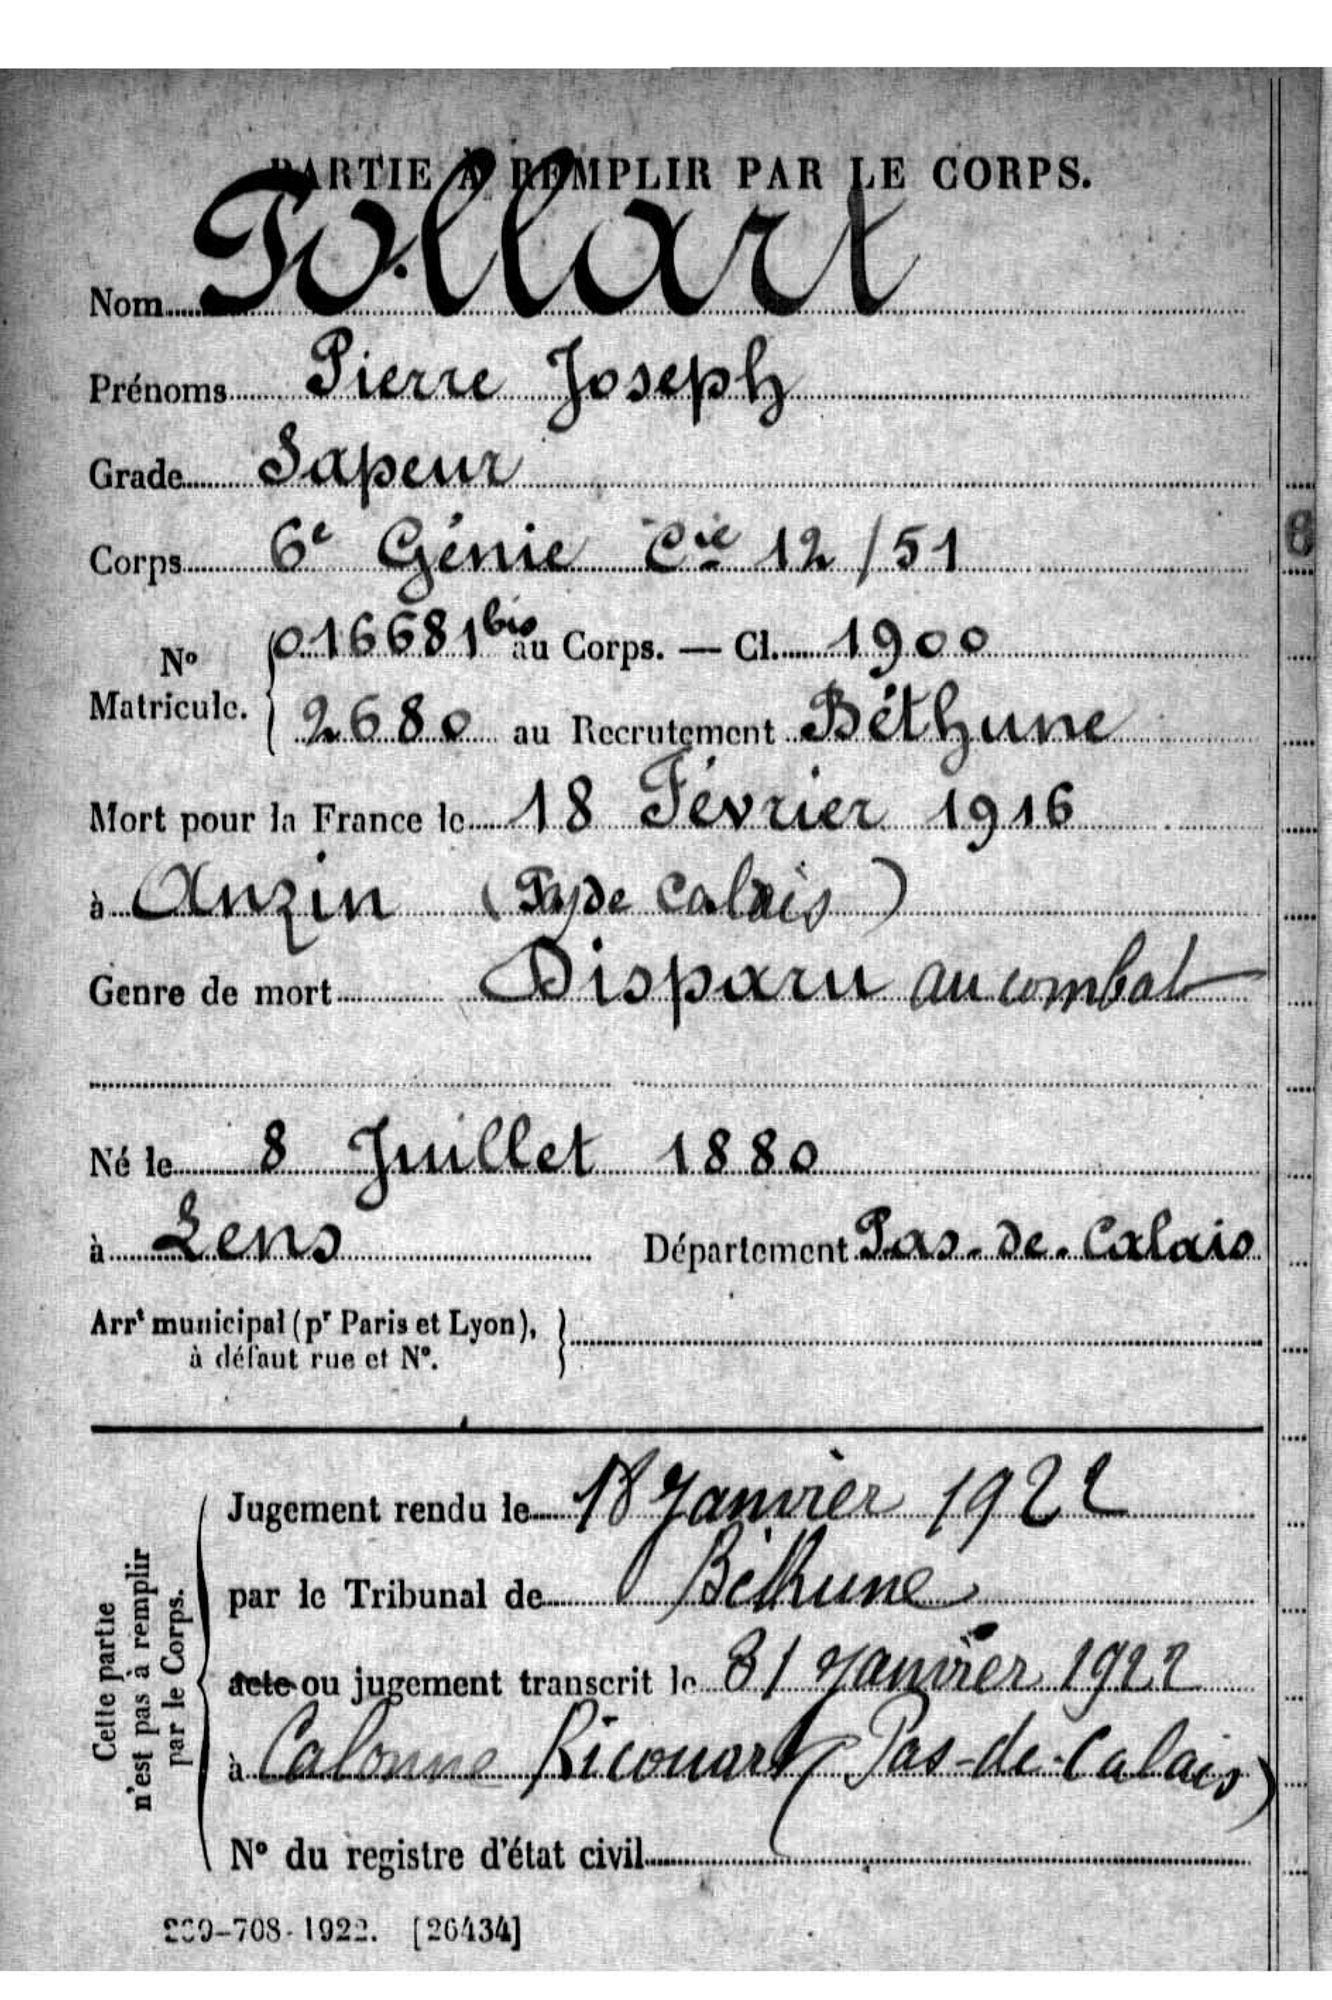 PARTIE À REMPLIR PAR LE CORPS.
Nom Pollart
Prénoms Pierre Joseph
Grade Sapeur
Corps 6e Génie Cie 12/51
No Matricule. { 016681 bis au Corps. — Cl. 1900
2680 au Recrutement Béthune
Mort pour la France le 18 Février 1916
à Anzin (Pas de Calais)
Genre de mort Disparu au combat
Né le 8 Juillet 1880
à Lens Département Pas-de-Calais
Arrt municipal (pr Paris et Lyon), }
à défaut rue et No.
Cette partie
n'est pas à remplir
par le Corps.
Jugement rendu le 18 Janvier 1922
par le Tribunal de Béthune
acte ou jugement transcrit le 31 Janvier 1922
à Calonne Ricouart (Pas-de-Calais)
No du registre d'état civil
-708-1922. [26434]